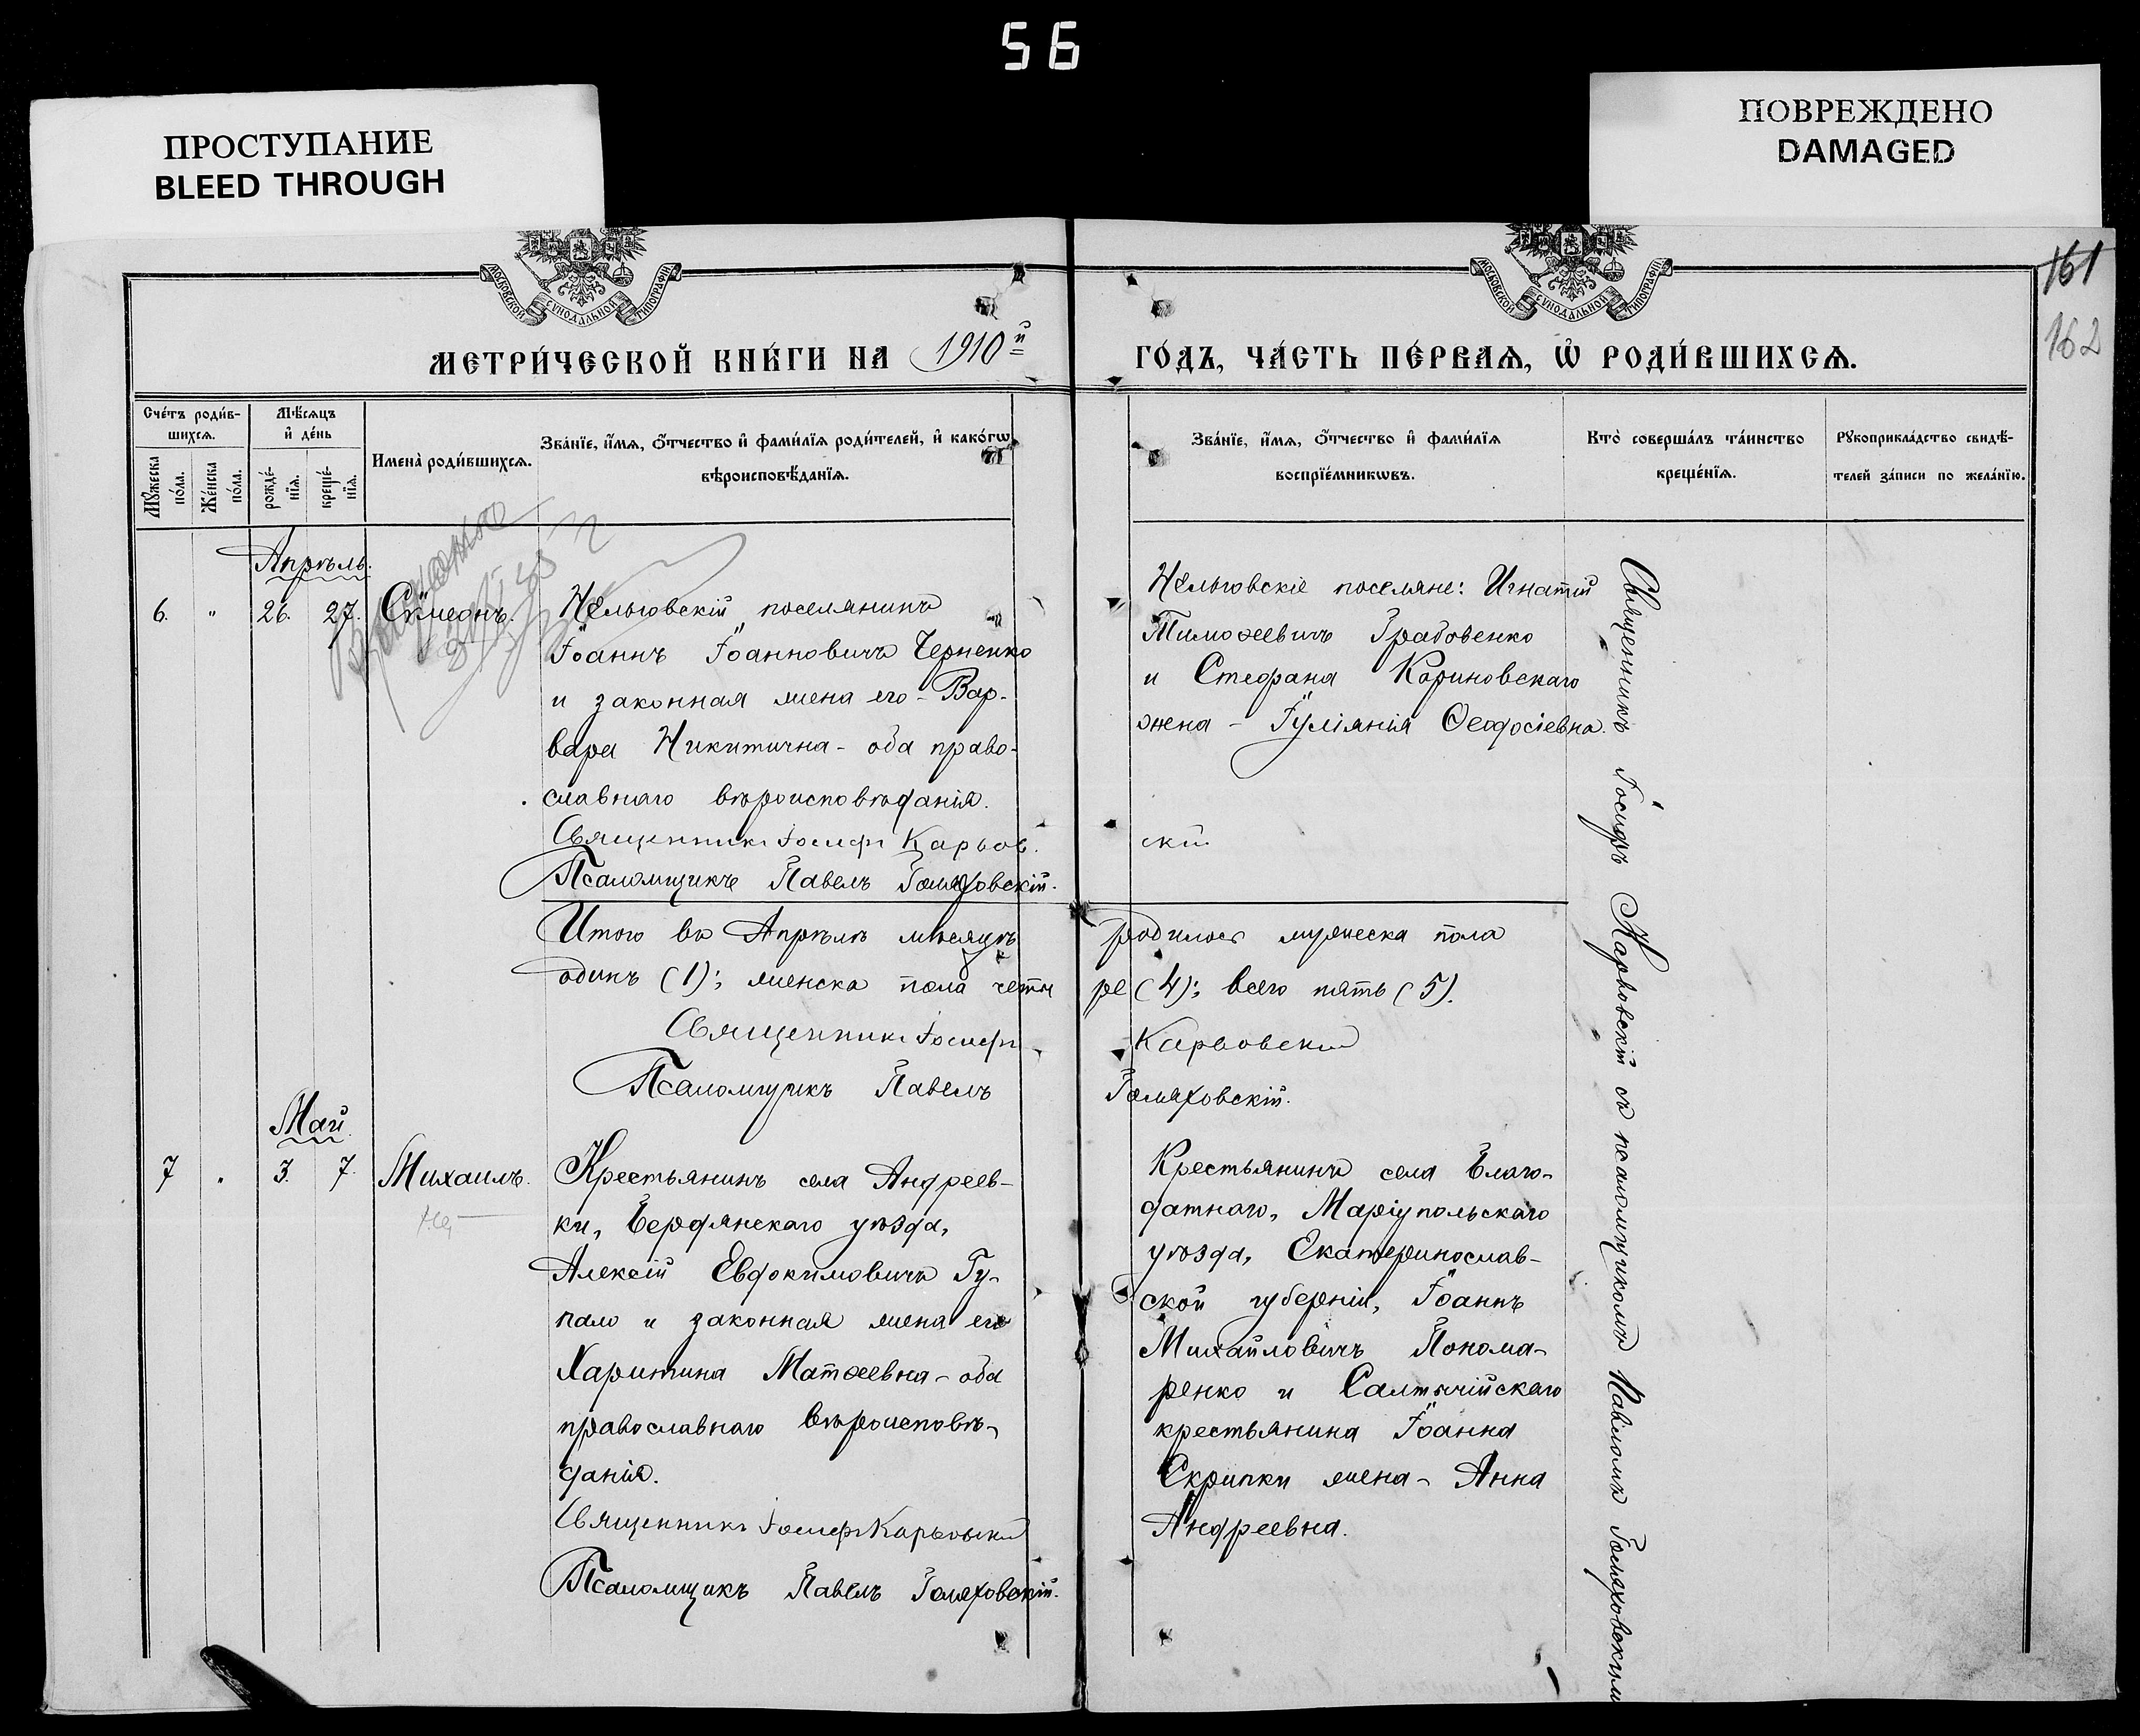 56
ПРОСТУПАНИЕ
BLEED THROUGH
ПОВРЕЖДЕНО
DAMAGED
МОСКОВСКОЙ СУНОДАЛЬНОЙ ТИПОГРАФІИ
МОСКОВСКОЙ СУНОДАЛЬНОЙ ТИПОГРАФІИ
161
162
МЕТРИ́ЧЕСКОЙ КНИ́ГИ НА 1910й
ГО́ДЪ, ЧА́СТЬ ПЕ́РВАѦ, Ѡ҆ РОДИ́ВШИХСѦ.
Сче́тъ роди́в-
шихсѧ.
Мꙋжеска по́ла.
Же́нска по́ла.
Мѣ́сѧцъ
и҆ де́нь
рожде́-
нїѧ.
креще́-
нїѧ.
Имена̀ роди́вшихсѧ.
Зва́нїе, и҆́мѧ, ѻ҆́тчество и҆ фами́лїѧ роди́телей, и҆ како́гѡ
вѣроисповѣ́данїѧ.
Зва́нїе, и҆́мѧ, ѻ҆́тчество и҆ фами́лїѧ
воспрїе́мникѡвъ.
Кто̀ соверша́лъ та́инство
креще́нїѧ.
Рꙋкоприкла́дство свидѣ́-
телей за́писи по жела́нїю.
Апрѣль.
6. " 26. 27. Сѵмеонъ.
Нельговскій поселянинъ
Іоаннъ Іоанновичъ Черненко
и законная жена его - Вар-
вара Никитична - оба право-
славнаго вѣроисповѣданія.
Священникъ Іосифъ Карьов
Псаломщикъ Павелъ Голяховскій.
Нельговскіе поселяне: Игнатій
Тимоѳеевичъ Грабовенко
и Стефана Кориновскаго
жена - Іуліанія Ѳеодосіевна.
скій
Итого въ Апрѣлѣ мѣсяцѣ родилось мужеска пола
одинъ (1); женска пола четы ре (4); всего пять (5).
Священникъ Іосифъ Карьовскій
Псаломщикъ Павелъ Голяховскій.
Май.
7 " 3. 7. Михаилъ.
Крестьянинъ села Андреев-
ки, Бердянскаго уѣзда,
Алексій Евдокимовичъ Гу-
пало и законная жена его
Харитина Матѳеевна - оба
православнаго вѣроисповѣ-
данія.
Священникъ Іосифъ Карьовскій
Псаломщикъ Павелъ Голяховскій.
Крестьянинъ села Благо-
датнаго, Маріупольскаго
уѣзда, Екатеринослав-
ской губерніи, Іоаннъ
Михайловичъ Понома-
ренко и Салтычійскаго
крестьянина Іоанна
Скрипки жена - Анна
Андреевна.
Священникъ Іосифъ Карьовскій съ псаломщикомъ Павломъ Голяховскимъ